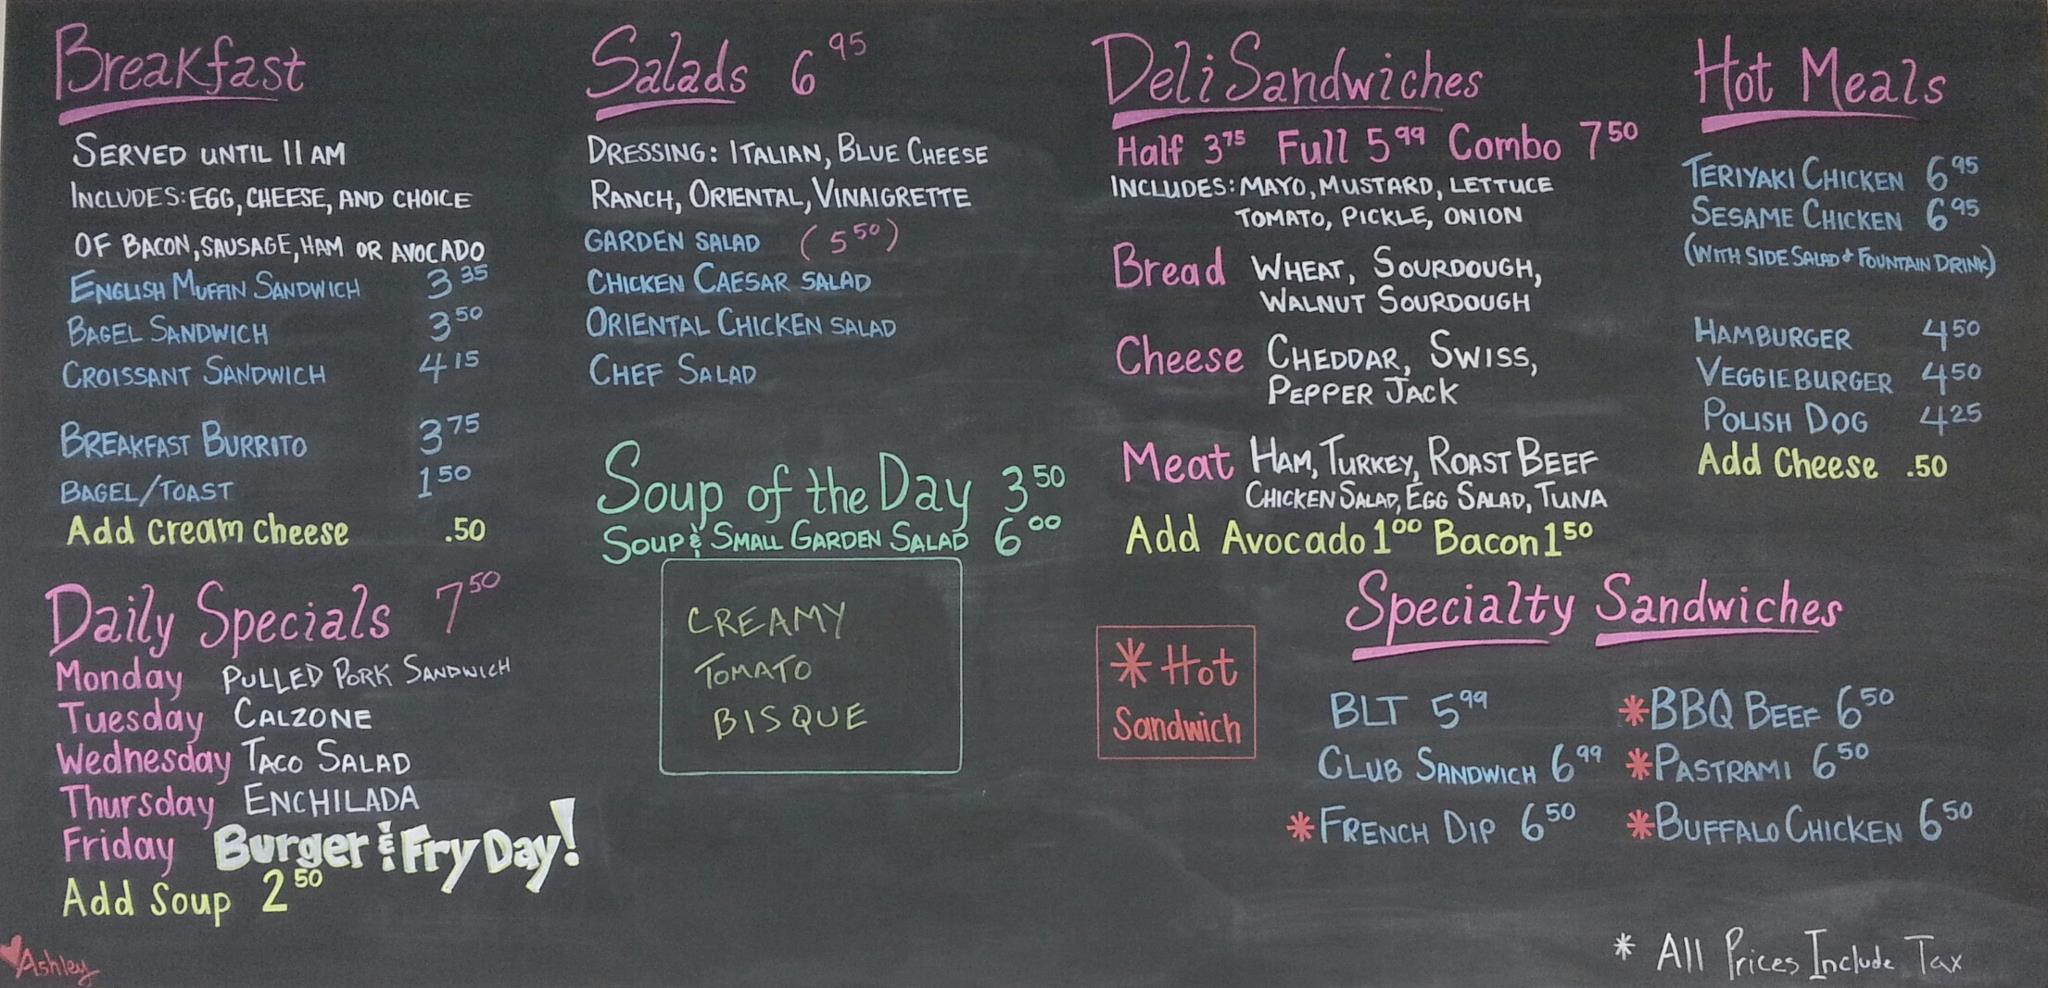 Breakfast
SERVED UNTIL 11 AM
INCLUDES: EGG, CHEESE, AND CHOICE
OF BACON, SAUSAGE, HAM OR AVOCADO
ENGLISH MUFFIN SANDWICH 3 35
BAGEL SANDWICH 3 50
CROISSANT SANDWICH 4 15
BREAKFAST BURRITO 3 75
BAGEL/TOAST 1 50
Add cream cheese .50
Daily Specials 7 50
Monday PULLED PORK SANDWICH
Tuesday CALZONE
Wednesday TACO SALAD
Thursday ENCHILADA
Friday Burger & Fry Day!
Add Soup 2 50
♥Ashley
Salads 6 95
DRESSING: ITALIAN, BLUE CHEESE
RANCH, ORIENTAL, VINAIGRETTE
GARDEN SALAD (5 50)
CHICKEN CAESAR SALAD
ORIENTAL CHICKEN SALAD
CHEF SALAD
Soup of the Day 3 50
SOUP & SMALL GARDEN SALAD 6 00
CREAMY
TOMATO
BISQUE
Deli Sandwiches
Half 3 75 Full 5 99 Combo 7 50
INCLUDES: MAYO, MUSTARD, LETTUCE
TOMATO, PICKLE, ONION
Bread WHEAT, SOURDOUGH,
WALNUT SOURDOUGH
Cheese CHEDDAR, SWISS,
PEPPER JACK
Meat HAM, TURKEY, ROAST BEEF
CHICKEN SALAD, EGG SALAD, TUNA
Add Avocado 1 00 Bacon 1 50
Hot Meals
TERIYAKI CHICKEN 6 95
SESAME CHICKEN 6 95
(WITH SIDE SALAD & FOUNTAIN DRINK)
HAMBURGER 4 50
VEGGIEBURGER 4 50
POLISH DOG 4 25
Add Cheese .50
Specialty Sandwiches
* Hot
Sandwich
BLT 5 99 *BBQ BEEF 6 50
CLUB SANDWICH 6 99 *PASTRAMI 6 50
*FRENCH DIP 6 50 *BUFFALO CHICKEN 6 50
* All Prices Include Tax